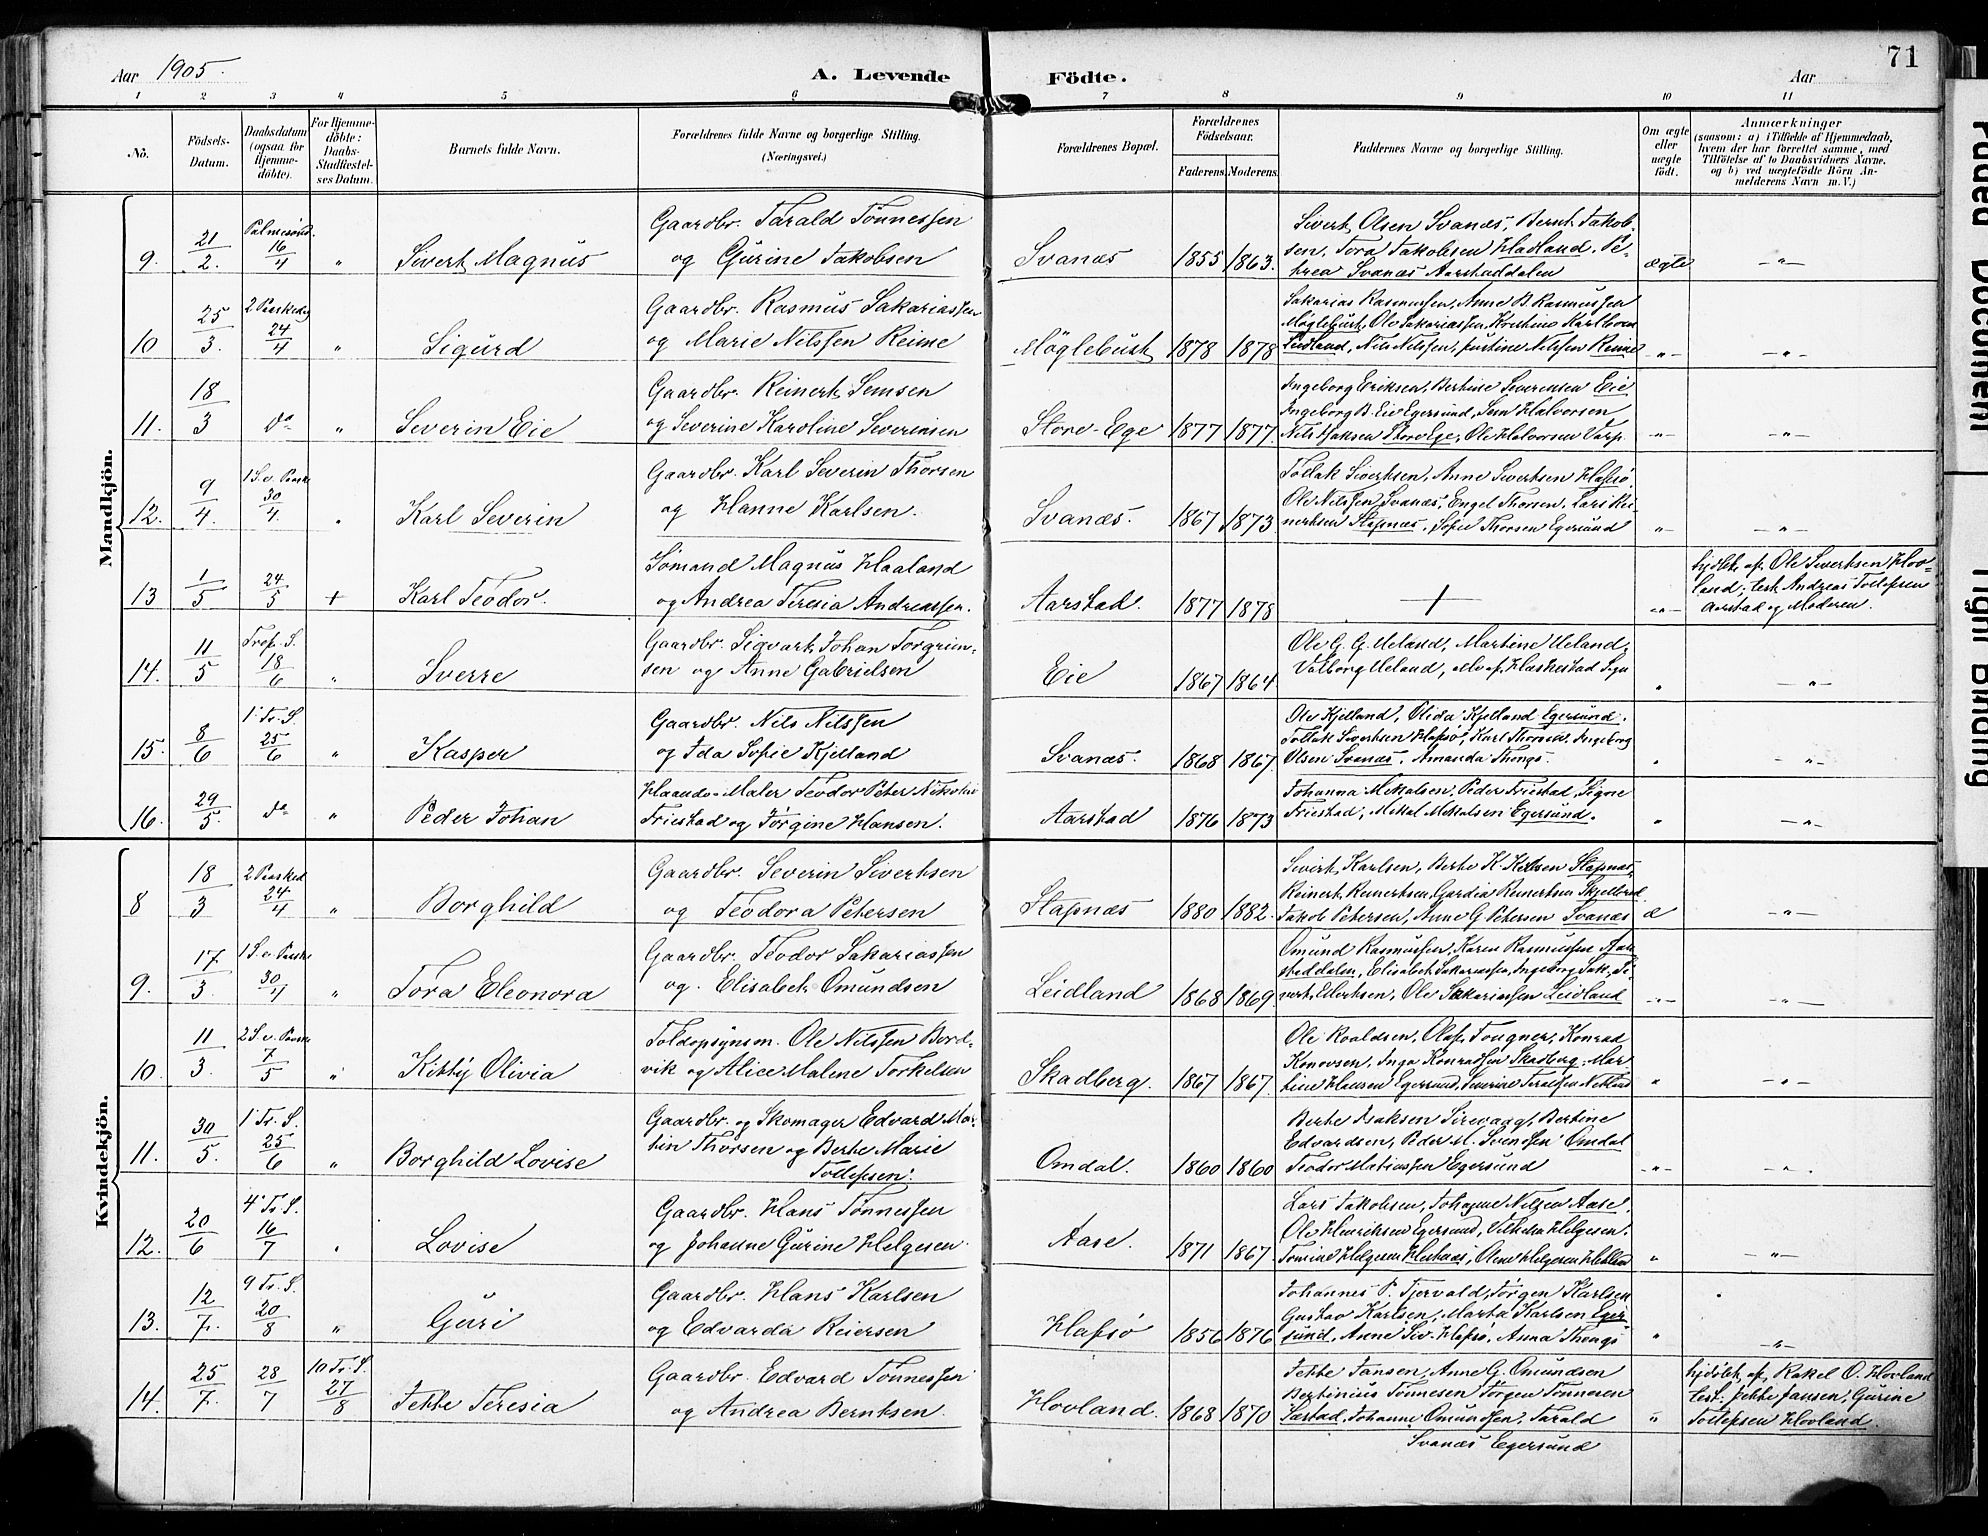 71
Aar 1905. A. Levende Födte. Aar
1 2 3 4 5 6 7 8 9 10 11
No. Födsels-Datum. Daabsdatum (ogsaa for Hjemmedöbte). For Hjemmedöbte: Daabs-Stadfæstelses Datum. Barnets fulde Navn. Forældrenes fulde Navne og borgerlige Stilling. (Næringsvei.) Forældrenes Bopæl. Forældrenes Födselsaar. Faderens. Moderens. Faddernes Navne og borgerlige Stilling. Om ægte eller uægte födt. Anmærkninger
(saasom: a) i Tilfælde af Hjemmedaab, hvem der har forrettet samme, med Tilföielse af to Daabsvidners Navne. og b) ved uægtefödte Börn Anmelderens Navn m. V.)
Mandkjön.
9. 21/2. Palmesönd. 16/4 " Sivert Magnus Gaardbr. Tarald Tönnessen og Gurine Jakobsen Svanæs 1855 1863. Sivert Olsen Svanæs, Bernt Jakobsen, Tora Jakobsen Hadland. Petrea Svanæs Aarstaddalen ægte -"-
10 25/3. 2 Paaskedg 24/4 " Sigurd Gaardbr. Rasmus Sakariassen og Marie Nilssen Reime Möglebust 1878 1878 Sakarias Rasmussen, Anne B. Rasmussen Möglebust, Ole Sakariassen, Kristine Karlsen Leidland, Nils Nilssen, Justine Nilssen Reime -"- -"-
11. 18/3 do " Severin Eie Gaardbr. Reinert Semsen og Severine Karoline Severinsen Store-Ege 1877 1877. Ingeborg Eriksen, Bertine Severinsen Eie Ingeborg B. Eie Egersund, Sem Halvorsen Nils Isaksen Store Ege, Ole Halvorsen Varp. -"- -"-
12. 9/4. 1 S. e. Paaske 30/4. " Karl Severin Gaardbr. Karl Severin Thorsen og Hanne Karlsen. Svanæs. 1867 1873. Tollak Sivertsen, Anne Sivertsen Hafsö. Ole Nilssen Svanæs, Engel Thorsen, Lars Reinertsen Slapnæs. Sofie Thorsen Egersund -"- -"-
13 1/5 24/5 + Karl Teodor. Sömand Magnus Haaland og Andrea Teresia Andreassen. Aarstad. 1877 1878 + -"- hjdöbt af Ole Sivertsen Hovland; test. Andreas Tollefsen Aarstad og Moderen.
14. 11/5 Tref. S. 18/6 " Sverre Gaardbr. Sigvart Johan Torgrimsen og Anne Gabrielsen Eie 1867 1864. Ole G. G. Ueland, Martine Ueland, Valborg Ueland, alle af Heskestad Sogn " -"-
15. 8/6 1. Tr. S. 25/6 " Kasper Gaardbr. Nils Nilssen og Ida Sofie Kjelland Svanæs. 1868 1867. Ole Kjelland, Olida Kjelland Egersund. Tollak Sivertsen Hafsö, Karl Thorsen, Ingeborg Olsen Svanæs, Amanda Thengs. " "-
16. 29/5. do " Peder Johan Haandv. Maler Teodor Peter Nikolai Friestad og Jörgine Hansen. Aarstad 1876 1873 Johanna Mikalsen, Peder Friestad, Signe Friestad, Mikal Mikalsen Egersund. " -"-
Kvindekjön.
8 18/3 2 Paasked 24/4 " Borghild Gaardbr. Severin Sivertsen og Teodora Petersen Slapnæs 1880 1882. Sivert Karlsen, Berte K. Karlsen Slapnæs, Reinert Reinertsen, Gardia Reinertsen Skjelbred Jakob Petersen, Anne G. Petersen Svanæs æ -"-
9. 17/3. 1 S. e. Paaske 30/4 " Tora Eleonora Gaardbr. Teodor Sakariassen og Elisabet Omundsen Leidland 1868 1869. Omund Rasmussen, Karen Rasmussen Aarstaddalen, Elisabet Sakariassen, Ingeborg Sak. Sivert Sivertsen, Ole Sakariassen Leidland -"- -"-
10. 11/3. 2 S. e. Paaske 7/5 " Kitty Olivia Toldopsynsm. Ole Nilssen Bordvik og Alice Malene Torkelsen Skadberg. 1867 1867. Ole Roaldsen, Olaf Tougner, Konrad Konovsen, Inga Konradsen Skadberg. Martine Hansen Egersund, Severine Taraldsen Netland " -"-
11. 30/5. 1. Tr. S. 25/6 " Borghild Lovise Gaardbr. og Skomager Edvard Martin Thorsen og Berte Marie Tollefsen. Omdal. 1860 1860 Berte Isaksen Sirevaag, Bertine Edvardsen, Peder M. Svendsen Omdal Teodor Matiassen Egersund -"- -".
12. 20/6 4. Tr. S. 16/7 " Lovise Gaardbr. Hans Tönnessen og Johanne Gurine Helgesen. Aase. 1871 1867. Lars Jakobsen, Johanne Nilsen Aase. Ole Henriksen Egersund, Vilhelm Helgesen. Tomine Helgesen Hestnæs, Olene Helgesen Hellen " "-
13. 12/7. 9 Tr. S. 20/8 " Guri Gaardbr. Hans Karlsen og Edvarda Reiersen Hafsö 1856 1876. Johannes P. Tjorvald, Jörgen Karlsen Gustav Karlsen, Marta Karlsen Egersund, Anne Siv. Hafsö, Anna Thengs " "-
14. 25/7. 28/7 10 Tr. S. 27/8 Jette Teresia Gaardbr. Edvard Tönnessen og Andrea Berntsen. Hovland. 1868 1870 Jette Jansen, Anne G. Omundsen Bertinius Tönnesen Jörgen Tönnesen Sæstad, Johanne Omundsen, Tarald Svanæs Egersund " hjdöbt af Rakel O. Hovland test: Jette Jansen, Gurine Tollefsen Hovland.
Faded Document
Tight Binding